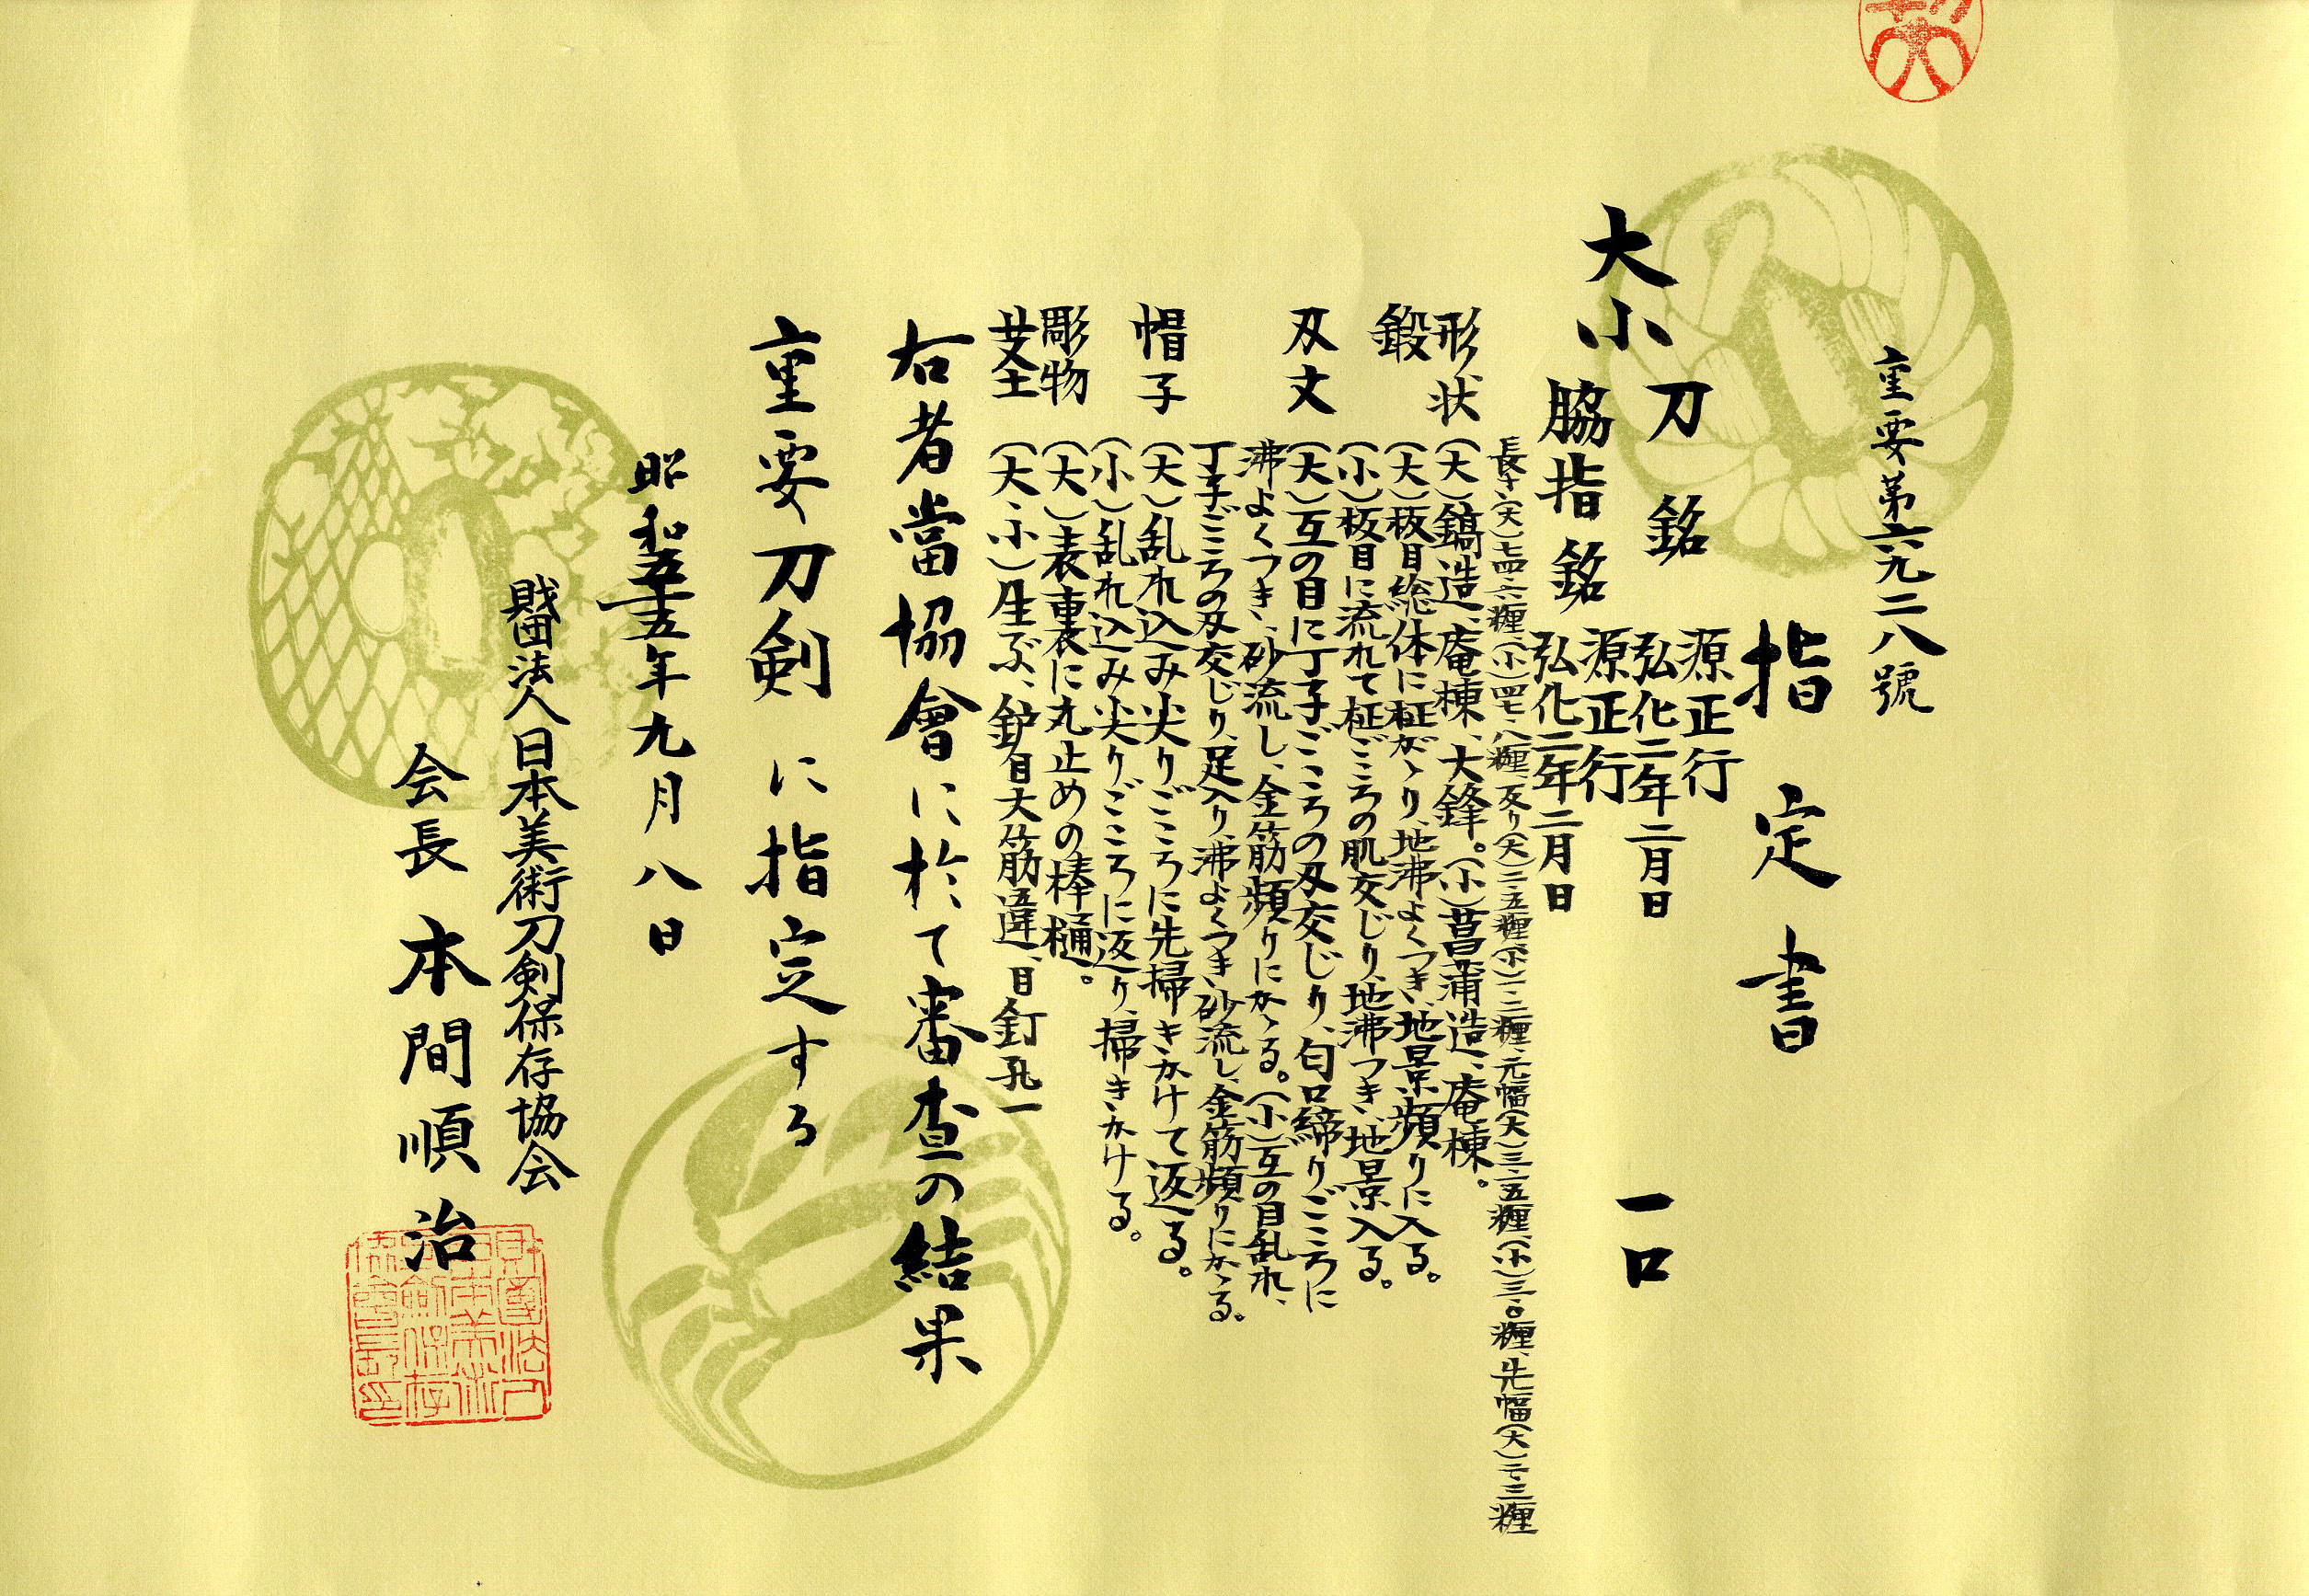 重要第六九二八號
指定書
大小
刀 銘 源正行
弘化二年二月日
脇指 銘 源正行
弘化二年二月日
一口
長サ(大)七四・六糎(小)四七・八糎、反り(大)二・五糎(小)一・二糎、元幅(大)三・五糎、(小)三・〇糎、先幅(大)二・三糎
形状 (大)鎬造、庵棟、大鋒。(小)菖蒲造、庵棟。
鍛 (大)板目総体に柾がゝり、地沸よくつき、地景頻りに入る。
(小)板目に流れて柾ごころの肌交じり、地沸つき、地景入る。
刃文 (大)互の目に丁子ごころの刃交じり、匂口締りごころに
沸よくつき、砂流し、金筋頻りにかゝる。(小)互の目乱れ、
丁子ごころの刃交じり、足入り、沸よくつき、砂流し、金筋頻りにかゝる。
帽子 (大)乱れ込み尖りごころに先掃きかけて返る。
(小)乱れ込み尖りごころに返り、掃きかける。
彫物 (大)表裏に丸止めの棒樋。
茎 (大、小)生ぶ、鑢目大筋違、目釘孔一
右者當協會に於て審査の結果
重要刀剣に指定する
昭和五十五年九月八日
財団法人日本美術刀剣保存協会
会長 本間順治